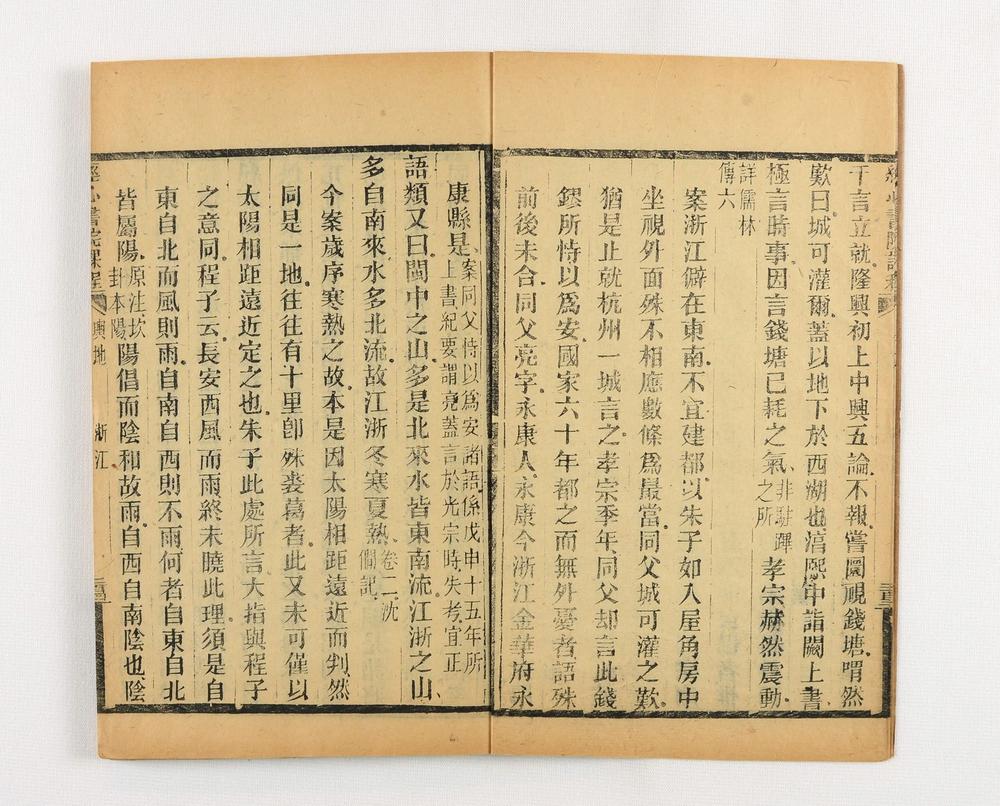 千言立就隆興初上中興五論不報嘗圜視錢塘喟然
歎曰城可灌爾蓋以地下於西湖也淳熙中詣闕上書
極言時事因言錢塘已耗之氣、非駐蹕之所孝宗赫然震動
詳儒林傳六
案浙江僻在東南不宜建都以朱子如入屋角房中
坐視外面殊不相應數條爲最當同父城可灌之歎
猶是止就杭州一城言之孝宗季年同父却言此錢
鏐所恃以爲安國家六十年都之而無外憂者語殊
前後未合同父亮字永康人永康今浙江金華府永
康縣是、案同父恃以爲安諸語係戊申十五年所上書紀要謂亮蓋言於光宗時失考宜正
語類又曰閩中之山多是北來水皆東南流江浙之山
多自南來水多北流故江浙冬寒夏熱、卷二沈僩記
今案歲序寒熱之故本是因太陽相距遠近而判然
同是一地往往有十里卽殊裘葛者此又未可僅以
太陽相距遠近定之也朱子此處所言大指與程子
之意同程子云長安西風而雨終未曉此理須是自
東自北而風則雨自南自西則不雨何者自東自北
皆屬陽原注坎卦本陽陽倡而陰和故雨自西自南陰也陰
經心書院課程 輿地 浙江